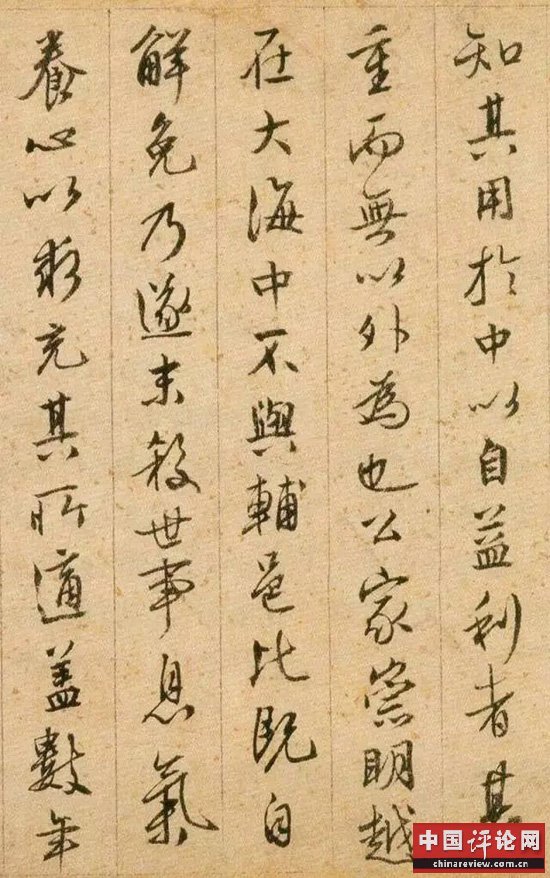 知其用於中以自益利者其
重而無以外為也公家崇明越
在大海中不與輔邑比既自
解免乃遂末殺世事息氣
養心以求充其所適蓋數年
中国评论网
chinareview.com